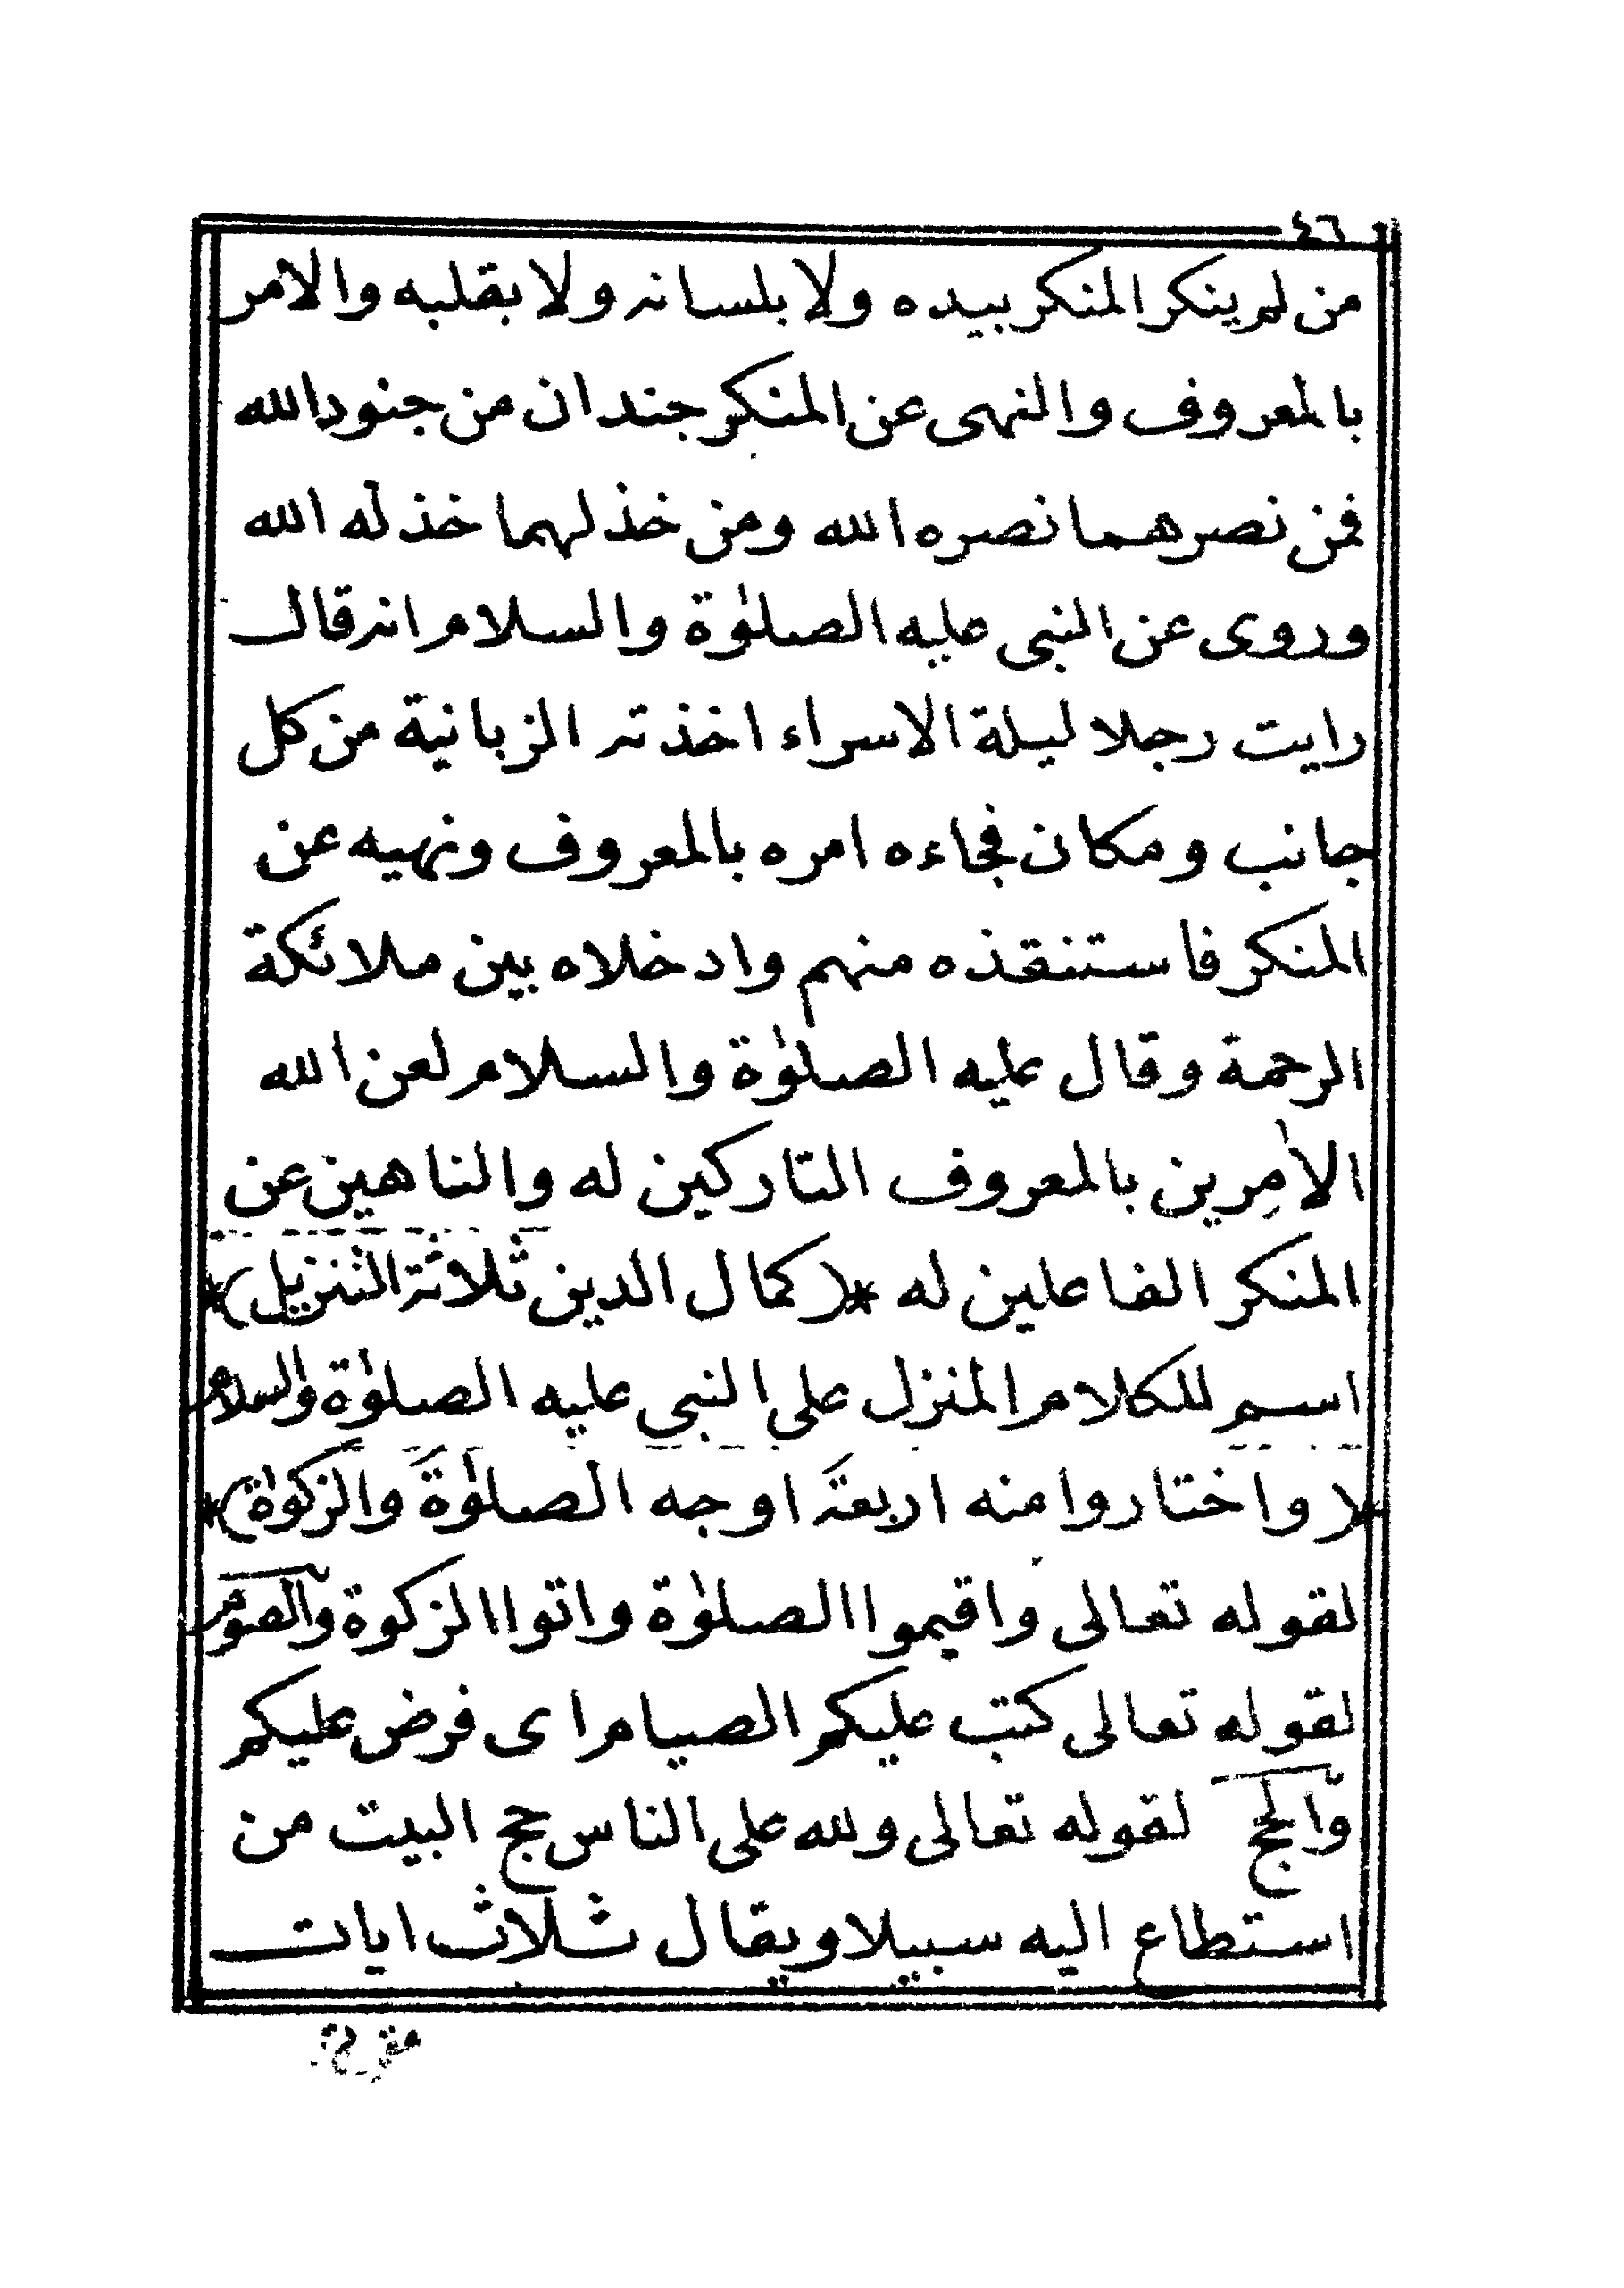 ٤٦
من لم ينكر المنكر بيده ولا بلسانه ولا بقلبه والامر
بالمعروف والنهى عن المنكر جندان من جنود الله
فمن نصرهما نصره الله ومن خذلهما خذله الله
وروى عن النبى عليه الصلوٰة والسلام انه قال
رايت رجلا ليلة الاسراء اخذته الزبانية من كل
جانب ومكان فجاءه امره بالمعروف ونهيه عن
المنكر فاستنقذه منهم وادخلاه بين ملائكة
الرحمة وقال عليه الصلوٰة والسلام لعن الله
الاٰمِرين بالمعروف التاركين له والناهين عن
المنكر الفاعلين له *(كمال الدين ثلاثة التنزيل)*
اسم للكلام المنزل على النبى عليه الصلوٰة والسلام
*( واختاروا منه اربعة اوجه الصلوٰةَ والزكوٰة)*
لقوله تعالى واقيموا الصلوٰة واتوا الزكوة والصوم
لقوله تعالى كتب عليكم الصيام اى فرض عليكم
والحج لقوله تعالى ولله على الناس حج البيت من
استطاع اليه سبيلا ويقال ثلاث ايات